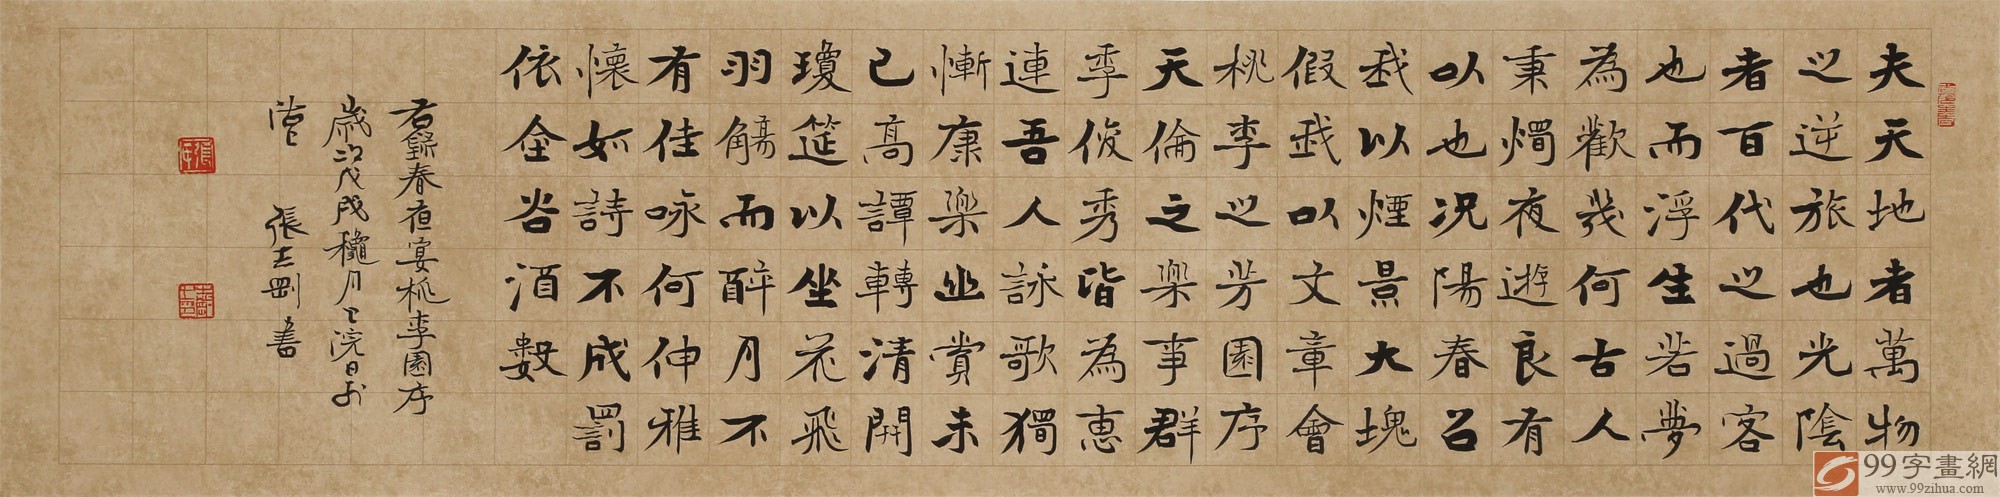 夫天地者萬物
之逆旅也光陰
者百代之過客
也而浮生若夢
為歡幾何古人
秉燭夜遊良有
以也况陽春召
我以煙景大塊
假我以文章會
桃李之芳園序
天倫之樂事群
季俊秀皆為惠
連吾人詠歌獨
慚康樂幽賞未
已高譚轉清開
瓊筵以坐花飛
羽觴而醉月不
有佳咏何伸雅
懷如詩不成罰
依金谷酒數
右錄春夜宴桃李園序
歲次戊戌穐月上浣日於
張志剛書
99字畫網
www.99zihua.com